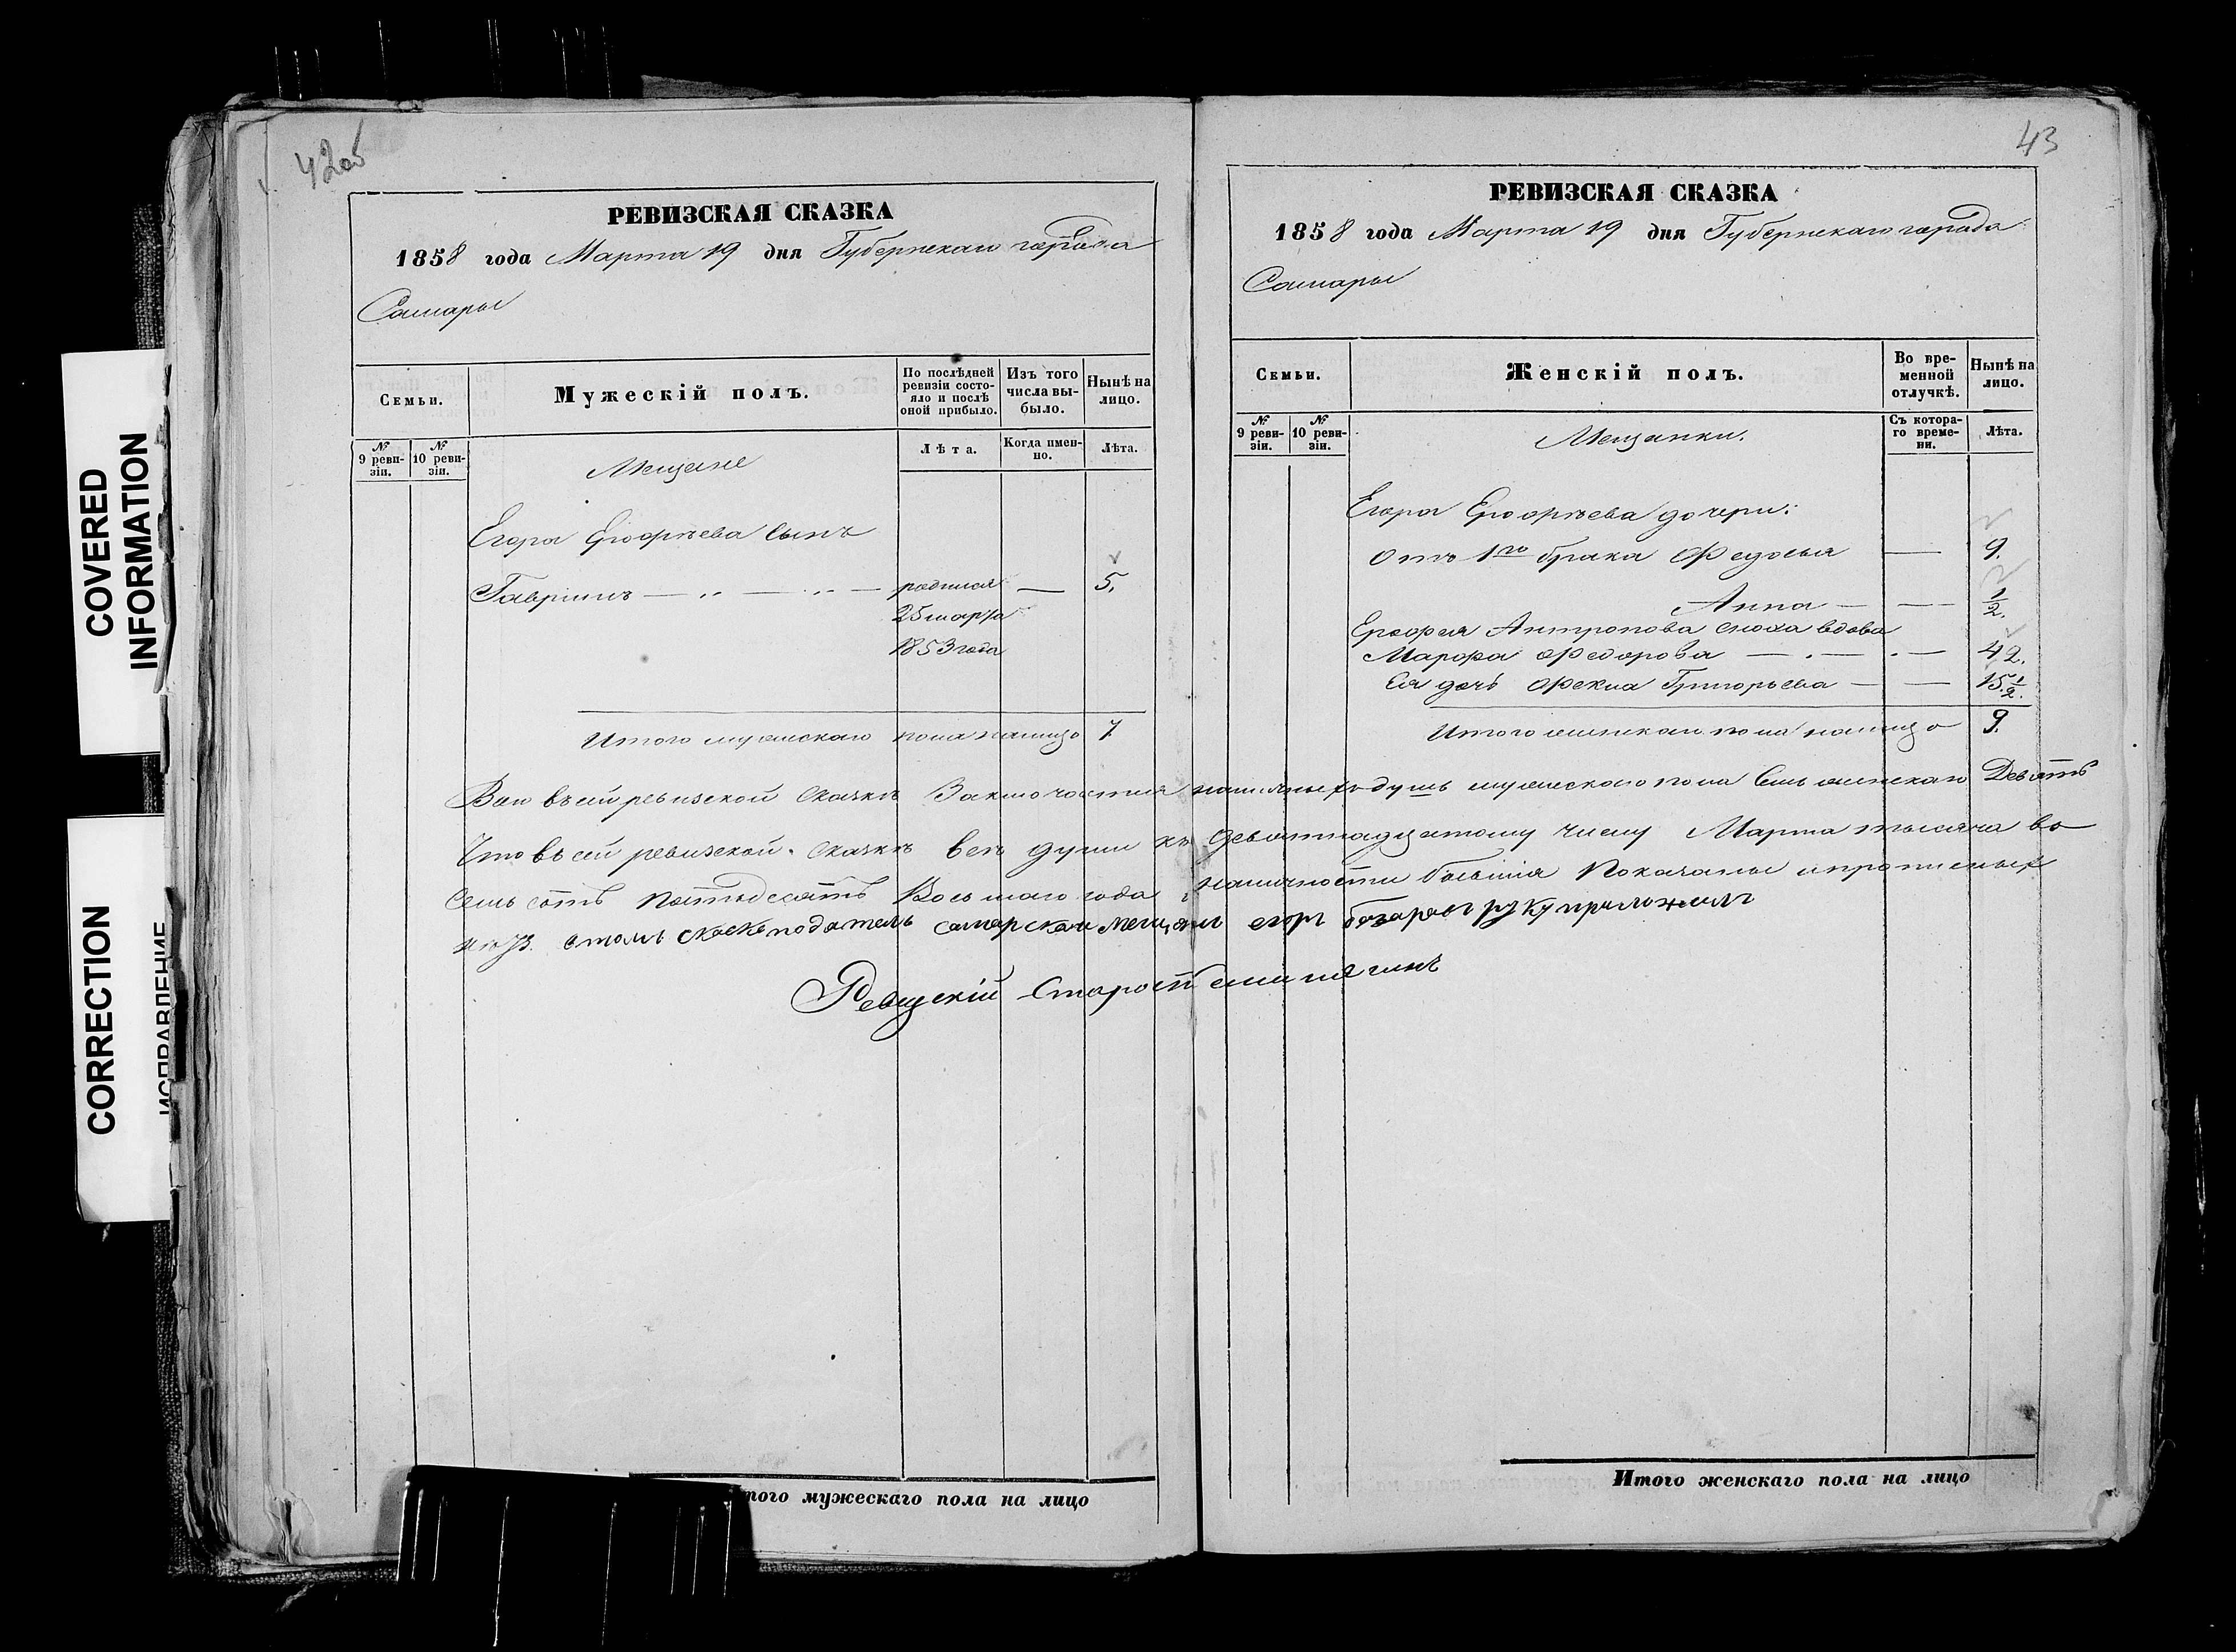 COVERED
INFORMATION
CORRECTION
ИСПРАВЛЕНИЕ
42об
РЕВИЗСКАЯ СКАЗКА
1858 года Марта 19 дня Губернскаго города
Самары
Семьи.
Мужескій полъ.
По послѣдней ревизіи состояло и послѣ оной прибыло.
Изъ того числа выбыло.
Нынѣ на лицо.
№ 9 ревизіи.
№ 10 ревизіи.
Мещане
Лѣта.
Когда именно.
Лѣта.
Егора Егорьева сынъ
Гаврилъ — „ — „ — родился — 5.
25 марта
1853 года
Итого мужескаго пола налицо 7.
43
РЕВИЗСКАЯ СКАЗКА
1858 года Марта 19 дня Губернскаго города
Самары
Семьи.
Женскій полъ.
Во временной отлучкѣ.
Нынѣ на лицо.
№ 9 ревизіи.
№ 10 ревизіи.
Мещанки.
Съ котораго времени.
Лѣта.
Егора Егорьева дочери:
отъ 1го брака Федосья — 9.
Анна — — 1/2.
Антропова сноха вдова
Марфа Федорова — . — . — 42.
Ея дочь Фекла Григорьева — — 15 1/2.
Итого женскаго пола налицо 9.
въ сей ревизской сказкѣ Заключается наличныхъ душъ мужескаго пола Семь женскаго Девять
Что въ сей ревизской сказкѣ всѣ души къ девятнадцатому числу Марта тысяча во
семь сотъ пятьдесятъ Восьмаго года наличности бывшія Показаны и прописныхъ
нѣтъ. в томъ скаскоподатель самарскаи мещанин егор базаров руку приложилъ
Староста
Итого мужескаго пола на лицо
Итого женскаго пола на лицо